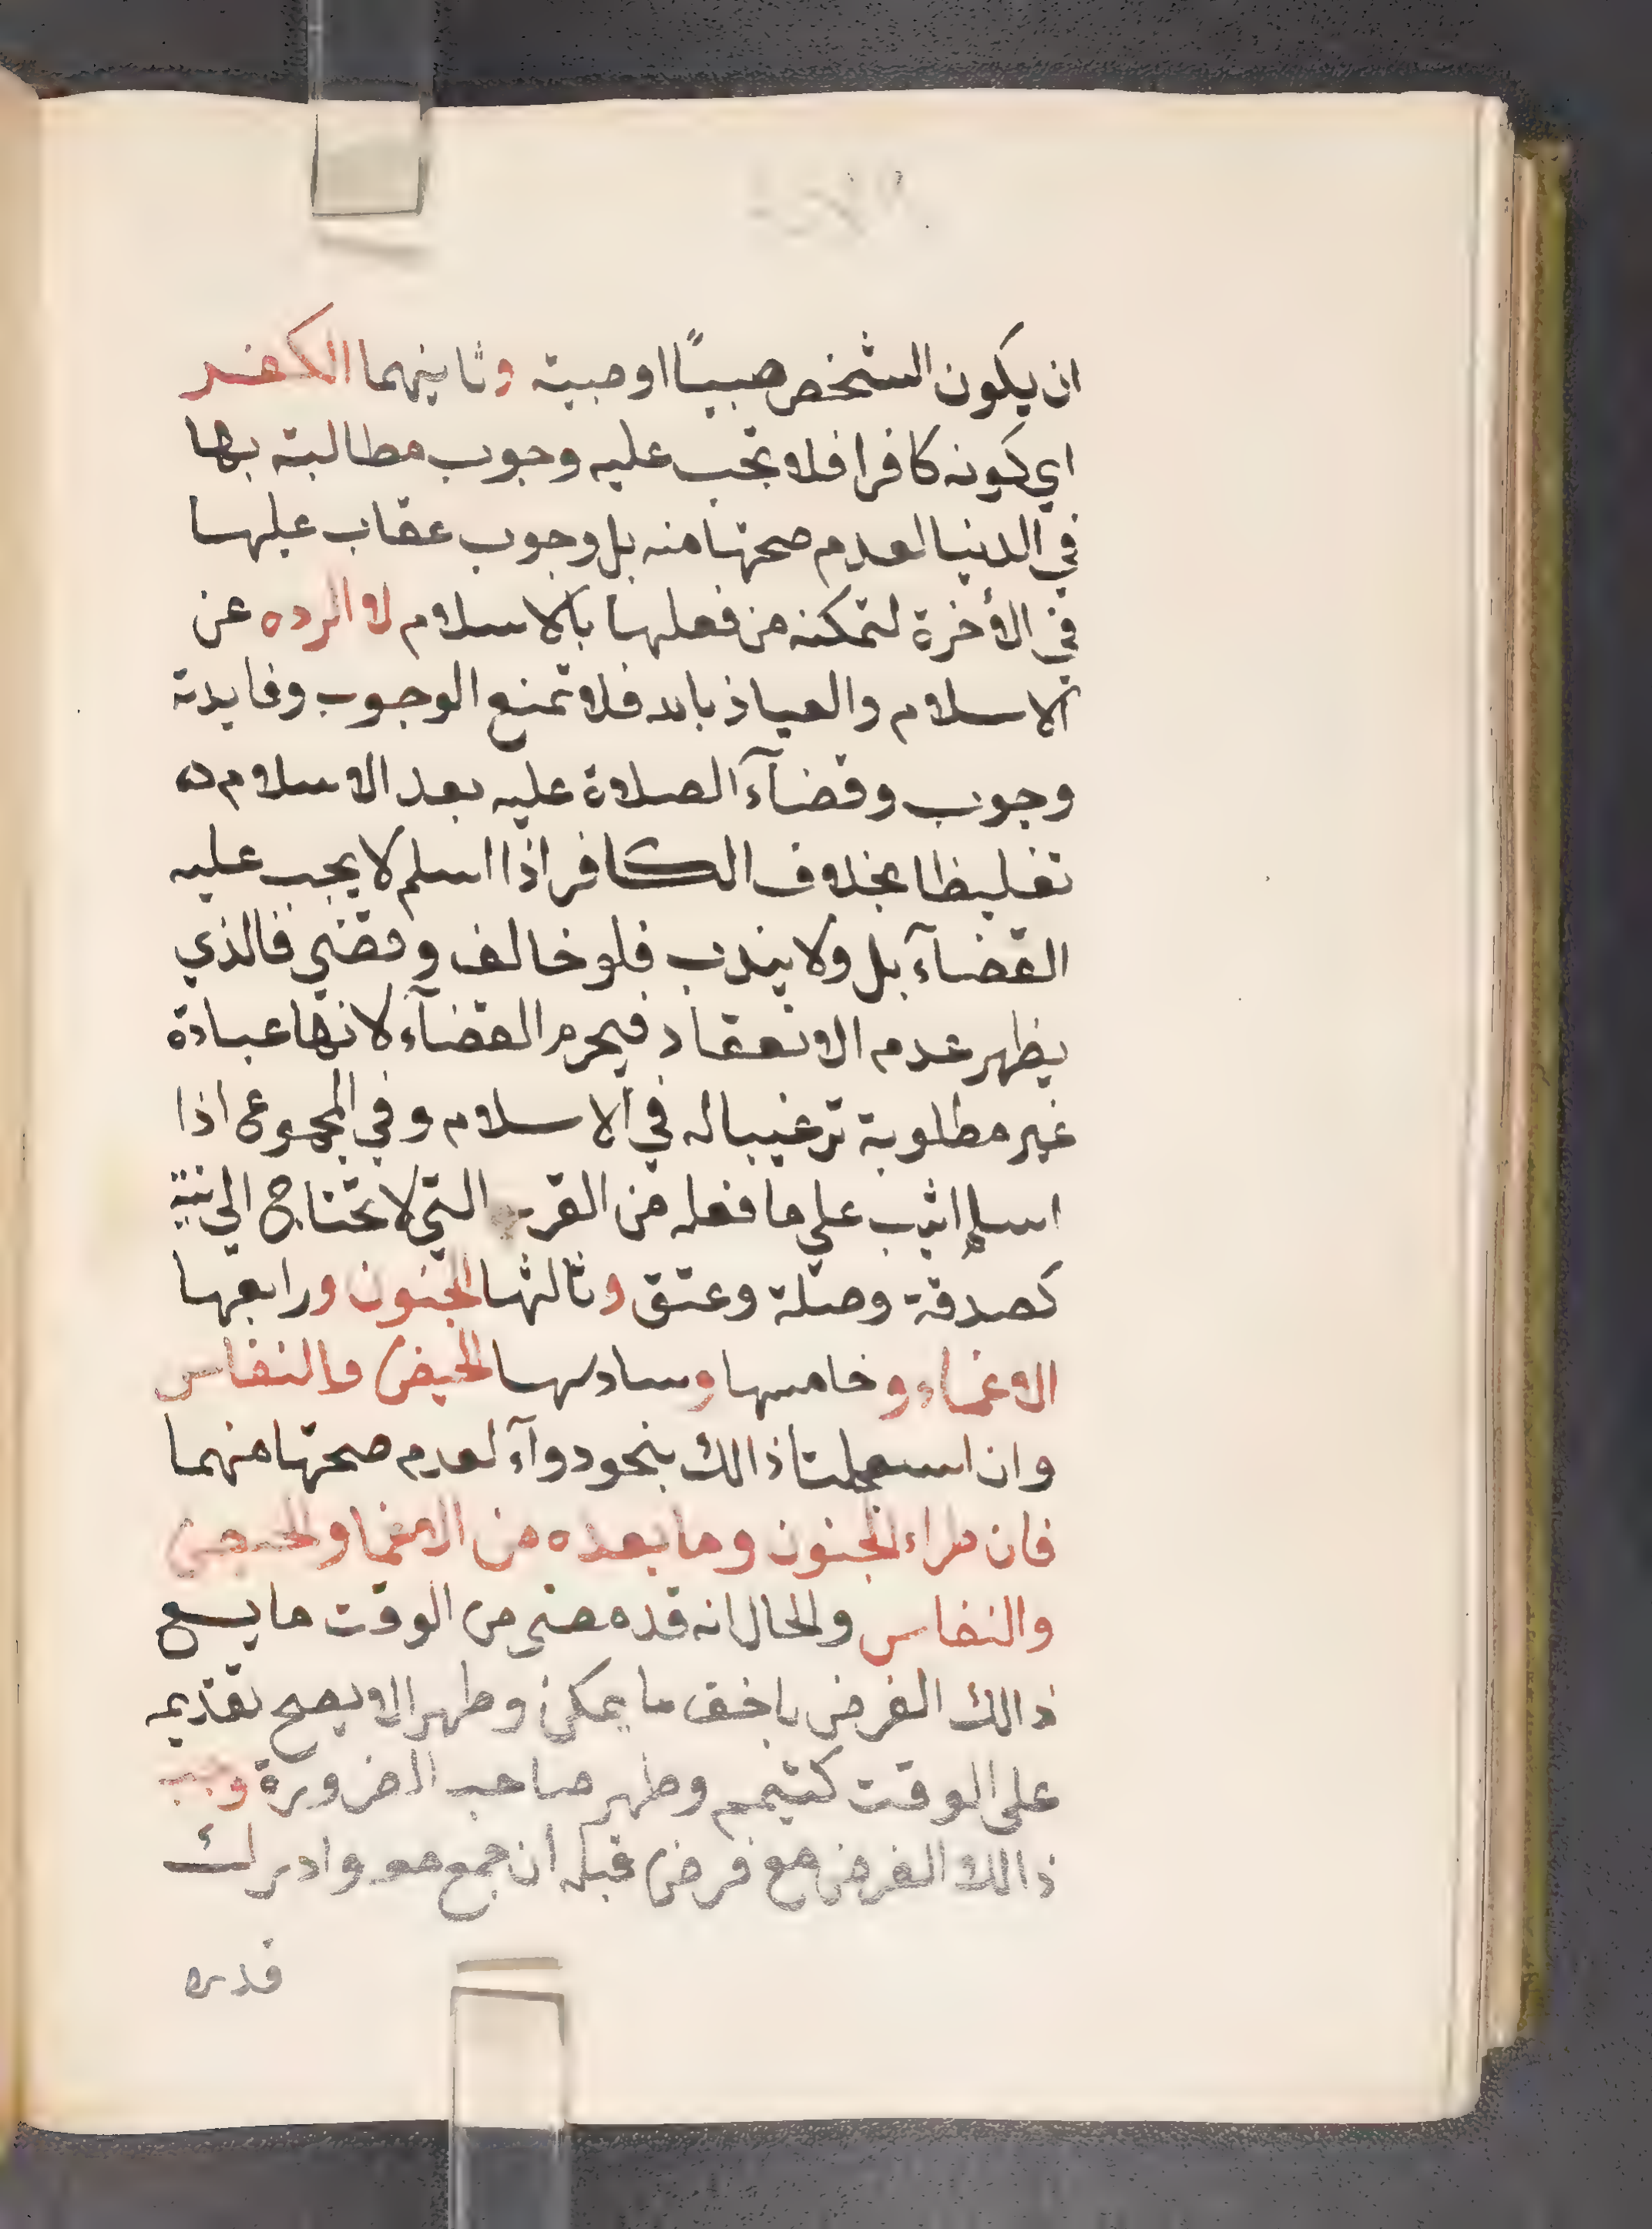 ان يكون الشخص صبيًا او صبية وثانيهما الكفر
اي كونه كافرا فلا تجب عليه وجوب مطالبة بها
في الدنيا لعدم صحتها منه بل وجوب عقاب عليها
في الأخرة لتمكنه من فعلها بالاسلام لا الرده عن
الاسلام والعياذ بالله فلا تمنع الوجوب وفايدة
وجوب وقضآء الصلاة عليه بعد الاسلام
تغليظا بخلاف الكافر اذا اسلم لا يجب عليه
القضآء بل ولا يندب فلو خالف وقضي فالذي
يظهر عدم الانعقاد فيحرم القضآء لانها عبادة
غير مطلوبة ترغيبا له في الاسلام وفي المجموع اذا
اسلم اثيب علي ما فعله من القرب التي لا تحتاج الي نية
كصدقة وصلة وعتق وثالثها الجنون ورابعها
الاغماء وخامسها وسادسها الحيض والنفاس
وان استعجلتا ذالك بنحو دوآء لعدم صحتها منهما
فان طراء الجنون وما بعده من الاغما والحيض
والنفاس والحال انه قد مضى من الوقت ما يسع
ذالك الفرض باخف ما يمكن وطهر الا يصح تقديمه
على الوقت كتيمم وطهر صاحب الضرورة وجب
ذالك الفرض مع فرض قبله ان جمع معه وادرك
قدره